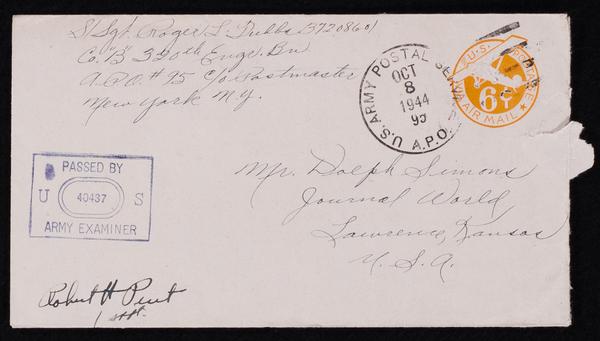 S/Sgt. Roger L Tubbs 37208601
Co. "B" 320th Engr. Bn
A.P.O. #95 c/o Postmaster
New York N.Y.
U.S. ARMY POSTAL SERVICE
OCT
8
1944
95
A.P.O.
U.S. POSTAGE
6¢
VIA AIR MAIL
PASSED BY
U 40437 S
ARMY EXAMINER
Mr. Dolph Simons
Journal World
Lawrence, Kansas
U.S.A.
Robert H